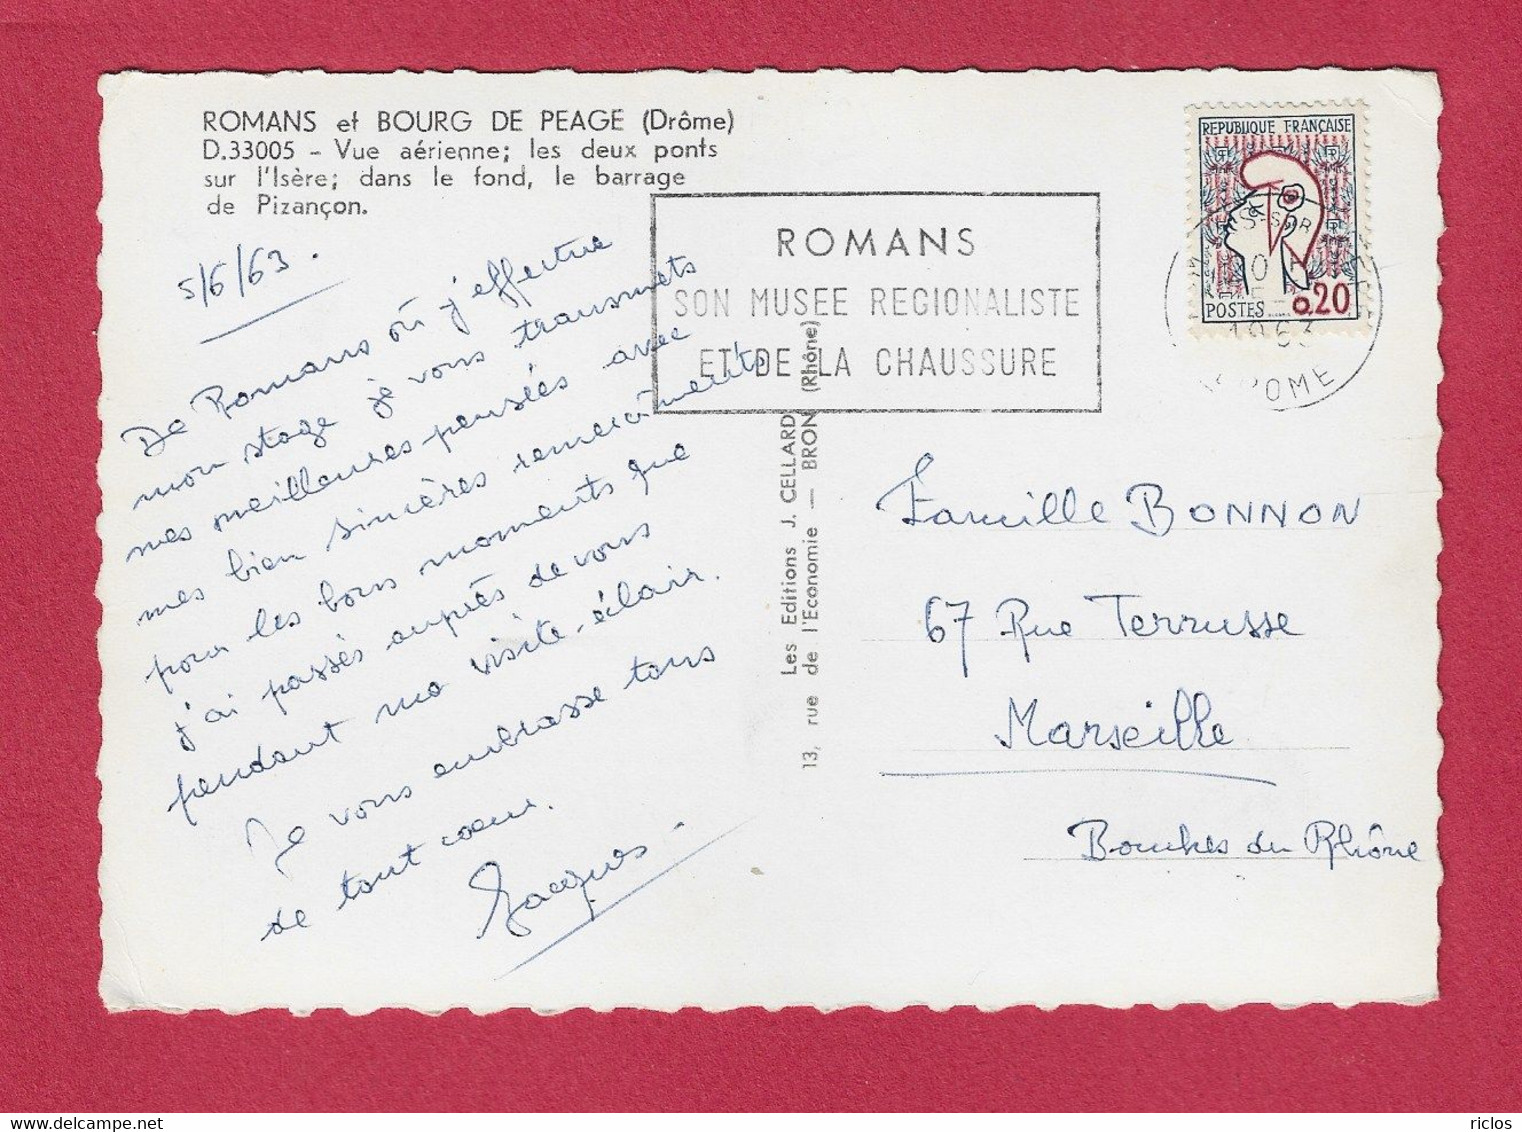 ROMANS et BOURG DE PEAGE (Drôme)
D.33005 - Vue aérienne; les deux ponts
sur l'Isère; dans le fond, le barrage
de Pizançon.
5/6/63.
De Romans où j'effectue
mon stage je vous transmets
mes meilleures pensées avec
mes bien sincères remerciements
pour les bons moments que
j'ai passés auprès de vous
pendant ma visite-éclair.
Je vous embrasse tous
de tout coeur.
Jacques
Les Editions J. CELLARD
13, rue de l'Economie — BRON (Rhône)
ROMANS
SON MUSEE REGIONALISTE
ET DE LA CHAUSSURE
REPUBLIQUE FRANÇAISE
POSTES 0,20
1963
DROME
Famille BONNON
67 Rue Terrusse
Marseille
Bouches du Rhône
riclos